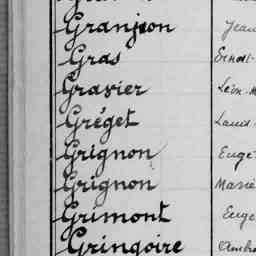 Granjeon Jean
Gras Ernest-
Gravier Léon-M
Gréget Louis-
Grignon Eugè
Grignon Marie
Grimont Eugè
Gringoire Ambro